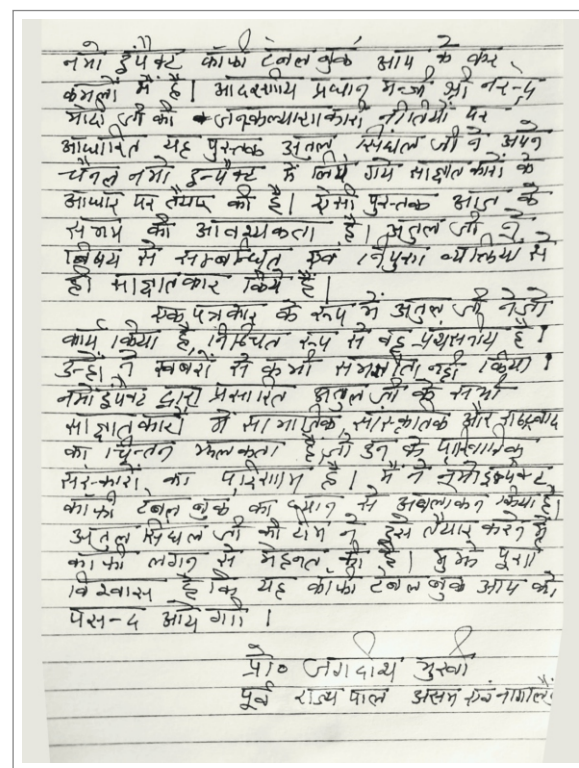 नमो इंपैक्ट कॉफी टेबल बुक आप के कर
कमलों में है। आदरणीय प्रधान मन्त्री श्री नरेन्द्र
मोदी जी की जनकल्याणकारी नीतियों पर
आधारित यह पुस्तक अतुल सिंघल जी ने अपने
चैनल नमो इम्पैक्ट में लिये गये साक्षातकारों के
आधार पर तैयार की है। ऐसी पुस्तक आज के
समय की आवश्यकता है। अतुल जी ने
विषय से सम्बन्धित एवं निपुण व्यक्तियों से
ही साक्षातकार किये हैं।
एक पत्रकार के रूप में अतुल जी ने जो
कार्य किया है, निश्चित रूप से वह प्रशंसनीय है।
उन्हों ने खबरों से कभी समझौता नही किया।
नमो इंपैक्ट द्वारा प्रसारित अतुल जी के सभी
साक्षातकारों में सामाजिक, सांस्कृतिक और राष्ट्रवाद
का चिन्तन झलकता है, जो इन के पारिवारिक
संस्कारों का परिणाम है। मैं ने नमो इम्पैक्ट
कॉफी टेबल बुक का ध्यान से अवलोकन किया है।
अतुल सिंघल जी की टीम ने इसे तैयार करने में
काफी लगन से मेहनत की है। मुझे पूरा
विश्वास है कि यह कॉफी टेबल बुक आप को
पसन्द आये गी।
प्रो० जगदीश मुखी
पूर्व राज्यपाल असम एवं नागालैंड